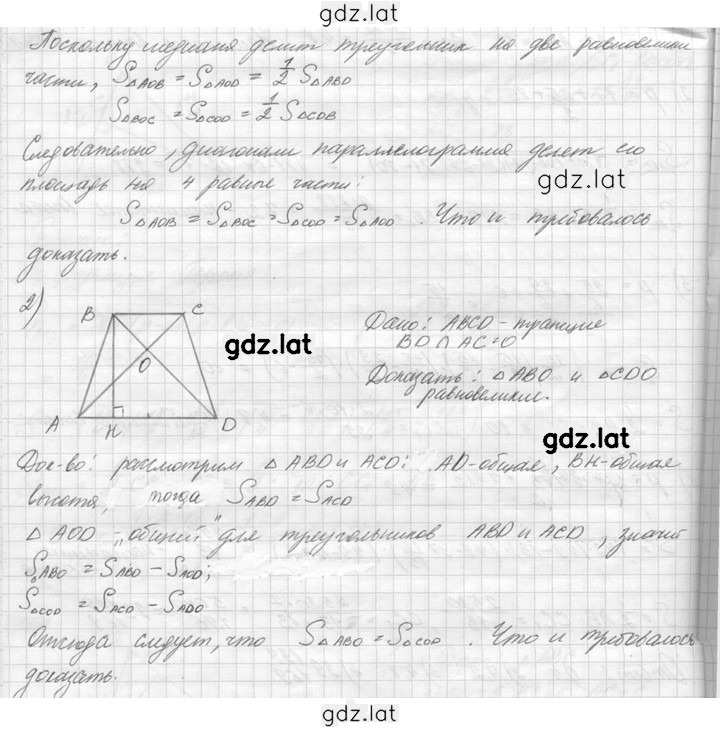 gdz.lat
Поскольку медиана делит треугольник на две равновелики
части, S△AOB = S△AOD = 1/2 S△ABD
S△BOC = S△COD = 1/2 S△CDB
Следовательно, диагонали параллелограмма делят его
площадь на 4 равные части:
gdz.lat
S△AOB = S△BOC = S△COD = S△AOD . Что и требовалось
доказать.
2)
B C
gdz.lat
O
A H D
Дано: ABCD - трапеция
BD ∩ AC = O
Доказать: △ABO и △CDO
равновеликие.
gdz.lat
Док-во: рассмотрим △ABD и ACD: AD-общая, BH-общая
высота, тогда SABD = SACD
△AOD „общий" для треугольников ABD и ACD, значит
S△ABO = SABD - SAOD;
S△COD = SACD - SADO
Отсюда следует, что S△ABO = S△COD . Что и требовалось
доказать.
gdz.lat